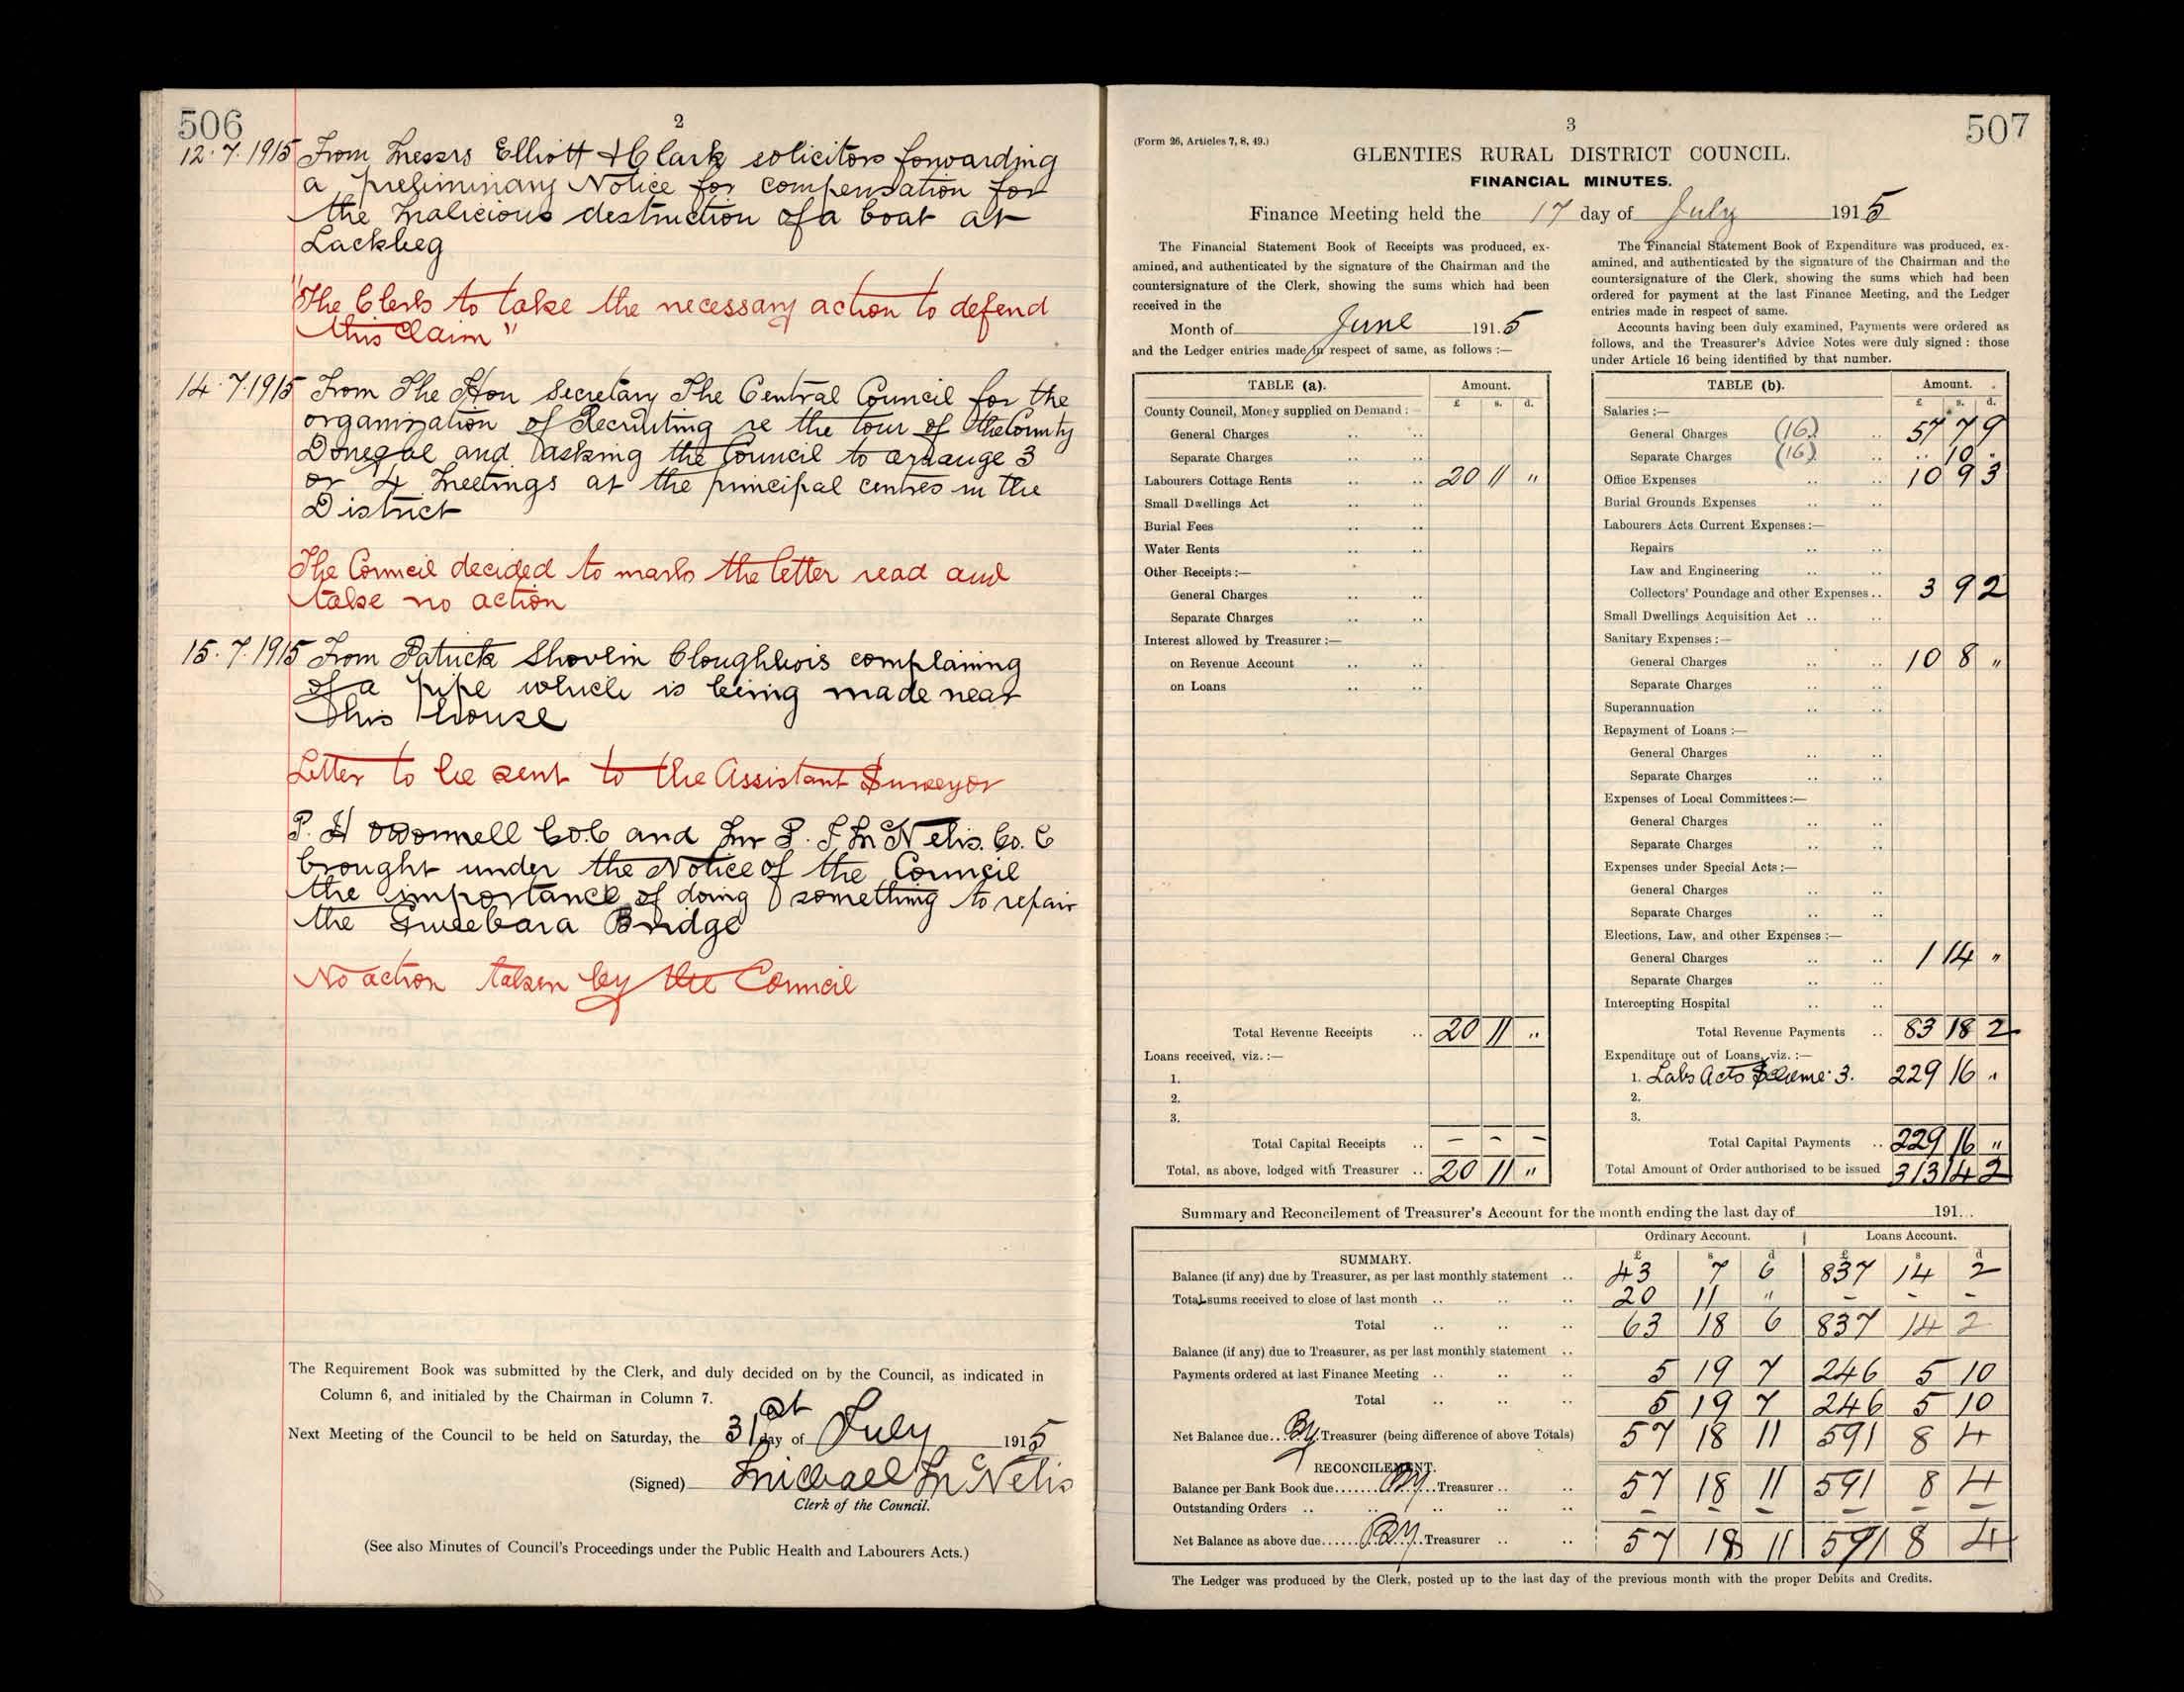 506
2
12.7.1915 From Messrs Elliott & Clark solicitors forwarding
a preliminary Notice for compensation for
the malicious destruction of a boat at
Lackbeg
"The Clerk to take the necessary action to defend
this Claim"
14.7.1915 From The Hon Secretary The Central Council for the
organization of Recruiting re the tour of the County
Donegal and asking the Council to arrange 3
or 4 meetings at the principal centres in the
District
The Council decided to mark the letter read and
take no action
15.7.1915 From Patrick Shovlin complaining
of a pipe which is being made near
his house
Letter to be sent to the Assistant Surveyor
P. H O'Donnell Co.C and Mr P. J. McNelis. Co. C
brought under the Notice of the Council
the importance of doing something to repair
the Gweebara Bridge
No action taken by the Council
The Requirement Book was submitted by the Clerk, and duly decided on by the Council, as indicated in
Column 6, and initialed by the Chairman in Column 7.
Next Meeting of the Council to be held on Saturday, the 31st day of July 1915
(Signed) Michael McNelis
Clerk of the Council.
(See also Minutes of Council's Proceedings under the Public Health and Labourers Acts.)
3
507
(Form 26, Articles 7, 8, 49.)
GLENTIES RURAL DISTRICT COUNCIL.
FINANCIAL MINUTES.
Finance Meeting held the 17 day of July 1915
The Financial Statement Book of Receipts was produced, ex-
amined, and authenticated by the signature of the Chairman and the
countersignature of the Clerk, showing the sums which had been
received in the
Month of June 191.5
and the Ledger entries made in respect of same, as follows :—
TABLE (a). Amount.
£ s. d.
County Council, Money supplied on Demand :
General Charges .. ..
Separate Charges .. ..
Labourers Cottage Rents .. .. 20 11 "
Small Dwellings Act .. ..
Burial Fees .. ..
Water Rents .. ..
Other Receipts :—
General Charges .. ..
Separate Charges .. ..
Interest allowed by Treasurer :—
on Revenue Account .. ..
on Loans .. ..
Total Revenue Receipts .. 20 11 "
Loans received, viz. :—
1.
2.
3.
Total Capital Receipts .. – – –
Total, as above, lodged with Treasurer .. 20 11 "
The Financial Statement Book of Expenditure was produced, ex-
amined, and authenticated by the signature of the Chairman and the
countersignature of the Clerk, showing the sums which had been
ordered for payment at the last Finance Meeting, and the Ledger
entries made in respect of same.
Accounts having been duly examined, Payments were ordered as
follows, and the Treasurer's Advice Notes were duly signed : those
under Article 16 being identified by that number.
TABLE (b). Amount.
£ s. d.
Salaries :—
General Charges (16) .. 57 7 9
Separate Charges (16) .. .. 10 "
Office Expenses .. .. 10 9 3
Burial Grounds Expenses .. ..
Labourers Acts Current Expenses :—
Repairs .. ..
Law and Engineering .. ..
Collectors' Poundage and other Expenses .. 3 9 2
Small Dwellings Acquisition Act .. ..
Sanitary Expenses :—
General Charges .. .. 10 8 "
Separate Charges .. ..
Superannuation .. ..
Repayment of Loans :—
General Charges .. ..
Separate Charges .. ..
Expenses of Local Committees :—
General Charges .. ..
Separate Charges .. ..
Expenses under Special Acts :—
General Charges .. ..
Separate Charges .. ..
Elections, Law, and other Expenses :—
General Charges .. .. 1 14 "
Separate Charges .. ..
Intercepting Hospital .. ..
Total Revenue Payments .. 83 18 2
Expenditure out of Loans, viz. :—
1. Labs Acts Scheme 3. 229 16 "
2.
3.
Total Capital Payments .. 229 16 "
Total Amount of Order authorised to be issued 313 14 2
Summary and Reconcilement of Treasurer's Account for the month ending the last day of 191...
Ordinary Account. Loans Account.
SUMMARY. £ s d £ s d
Balance (if any) due by Treasurer, as per last monthly statement .. 43 7 6 837 14 2
Total sums received to close of last month .. .. .. 20 11 " – – –
Total .. .. .. 63 18 6 837 14 2
Balance (if any) due to Treasurer, as per last monthly statement ..
Payments ordered at last Finance Meeting .. .. .. 5 19 7 246 5 10
Total .. .. .. 5 19 7 246 5 10
Net Balance due...By.Treasurer (being difference of above Totals) 57 18 11 591 8 4
RECONCILEMENT.
Balance per Bank Book due.......By...Treasurer .. .. 57 18 11 591 8 4
Outstanding Orders .. .. .. .. .. – – – – – –
Net Balance as above due......By...Treasurer .. .. 57 18 11 591 8 4
The Ledger was produced by the Clerk, posted up to the last day of the previous month with the proper Debits and Credits.